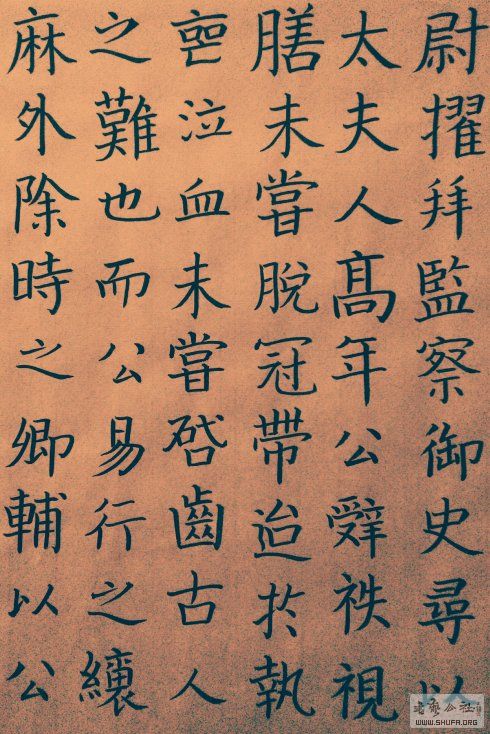 尉擢拜監察御史尋以
太夫人髙年公辤袟視
膳未嘗脫冠帶迨於執
喪泣血未嘗啓齒古人
之難也而公易行之縗
麻外除時之卿輔以公
書藝公社
WWW.SHUFA.ORG